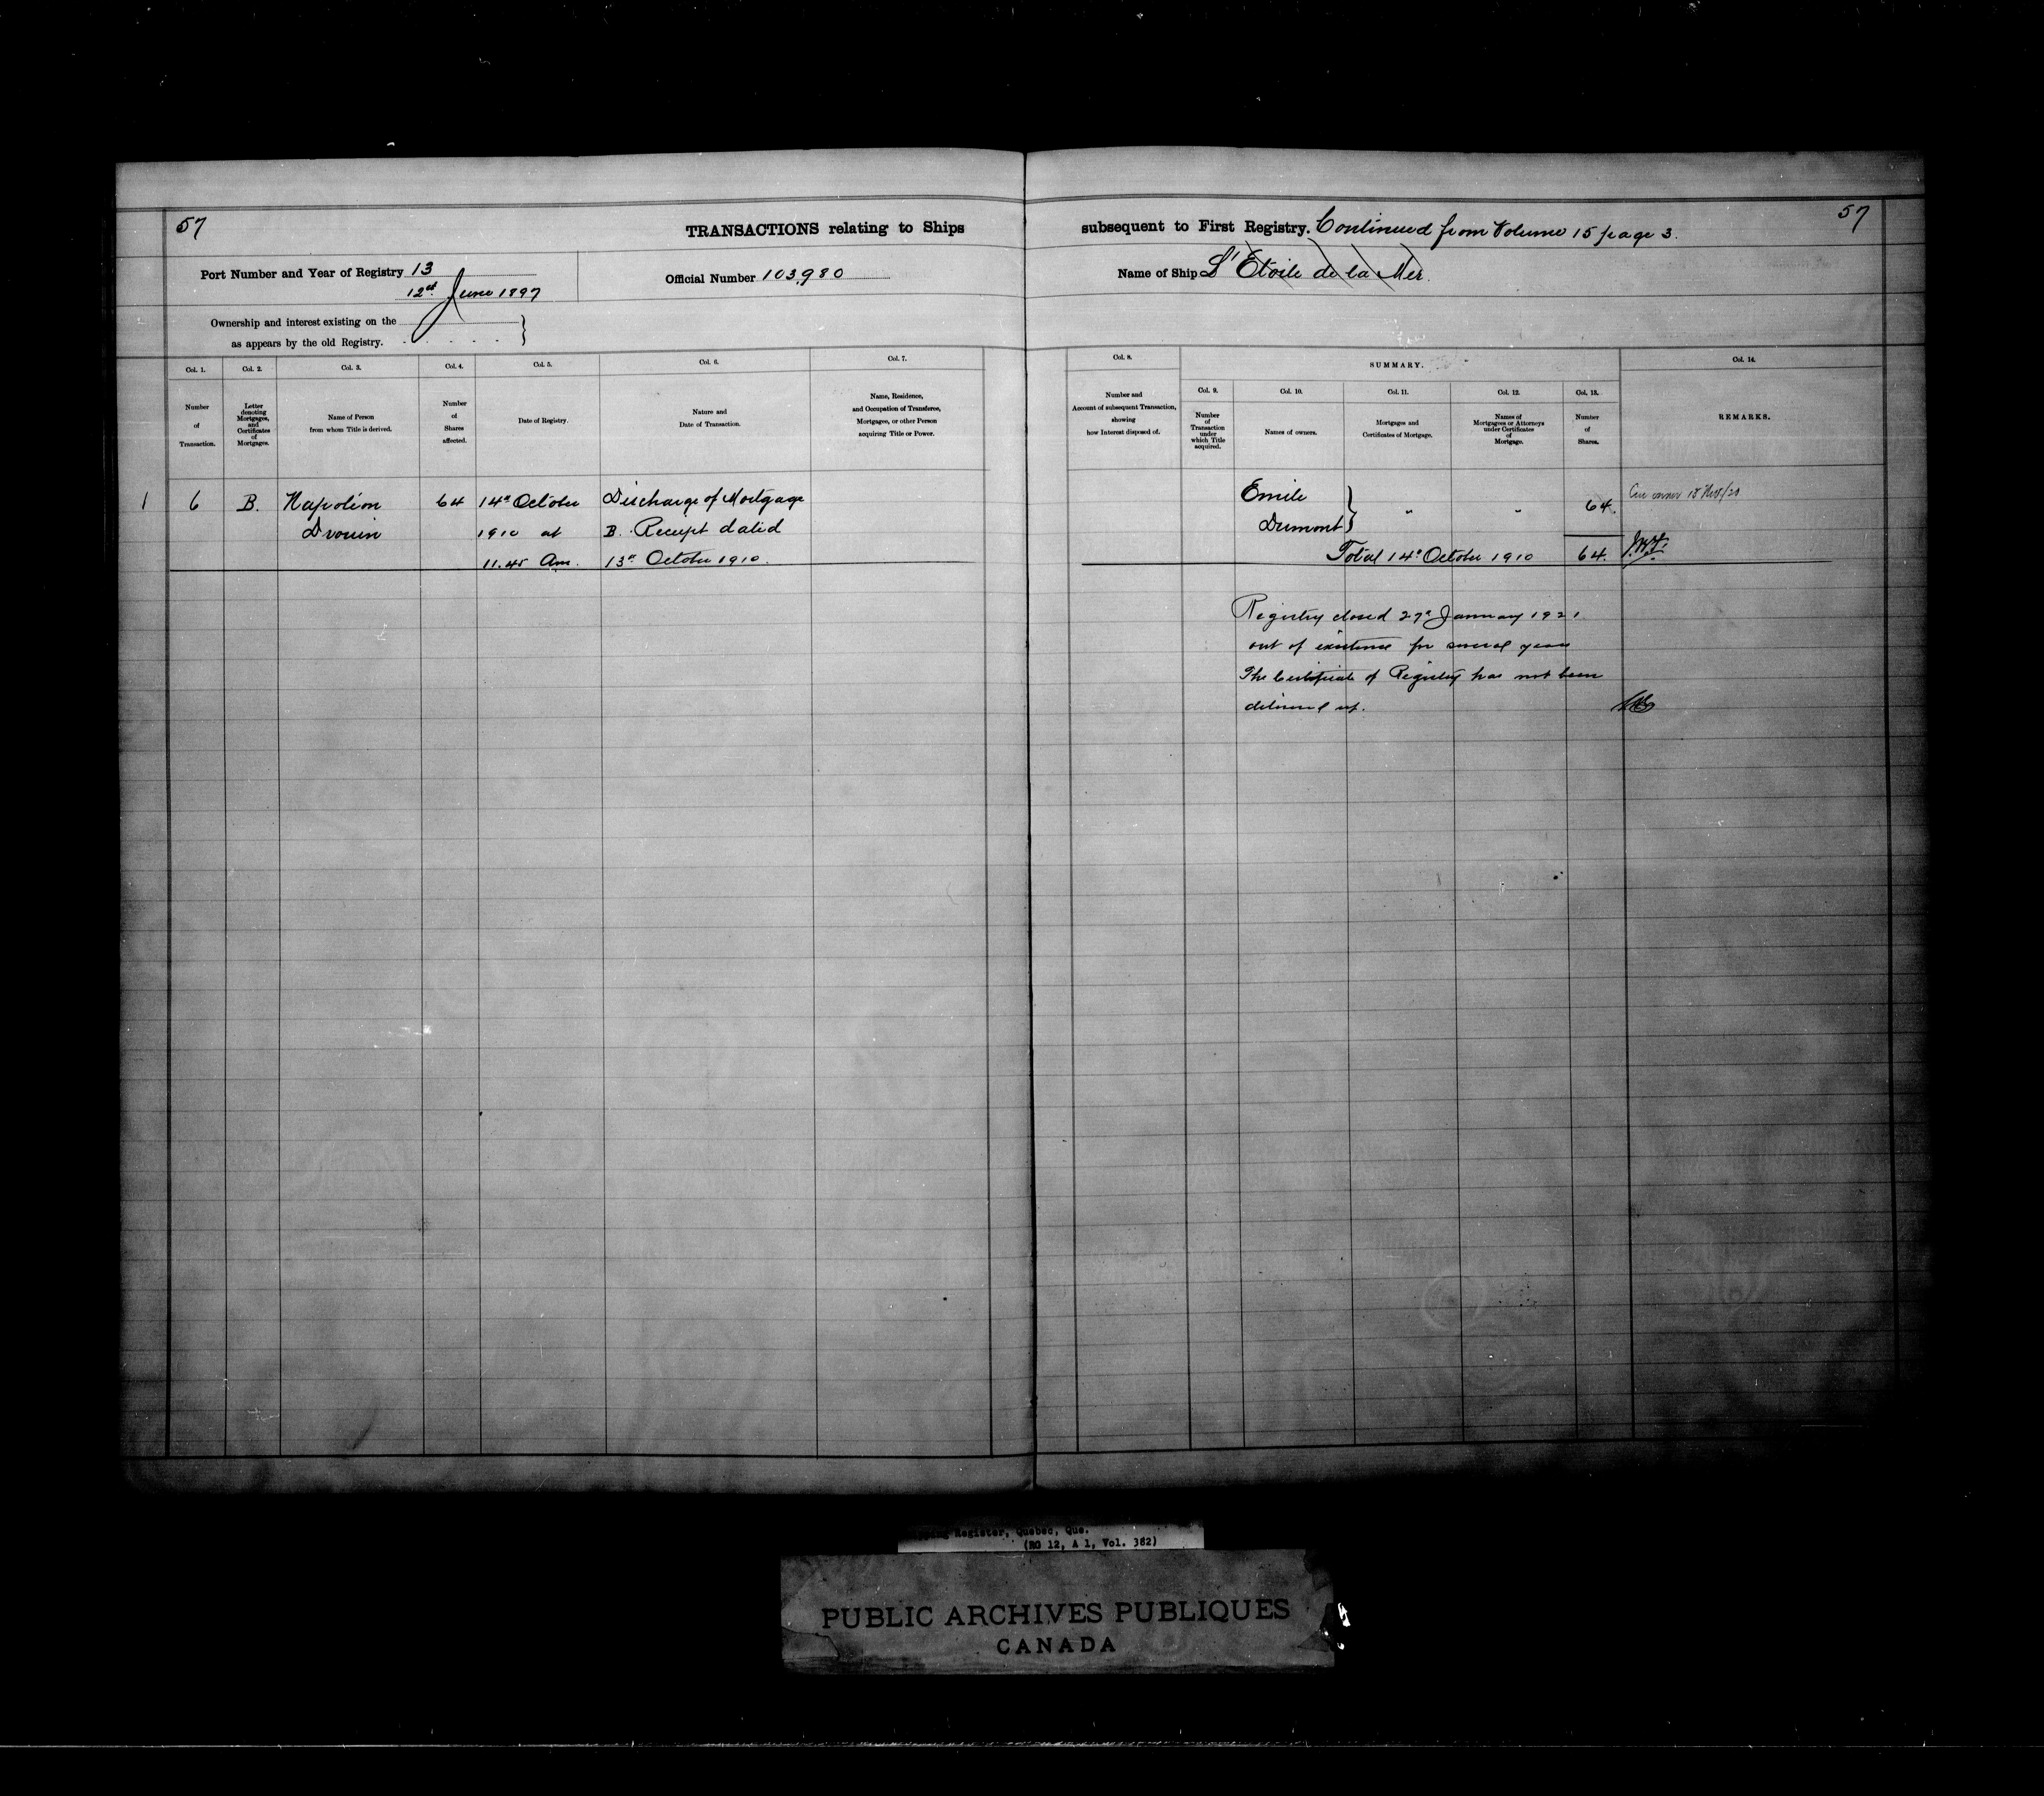 57
57
TRANSACTIONS relating to Ships subsequent to First Registry. Continued from Volume 15 page 3.
Port Number and Year of Registry 13
12th June 1897
Official Number 103,980
Name of Ship L'Etoile de la Mer.
Ownership and interest existing on the
as appears by the old Registry.
Col. 1.
Number
of
Transaction.
Col. 2.
Letter
denoting
Mortgages,
and
Certificates
of
Mortgages.
Col. 3.
Name of Person
from whom Title is derived.
Col. 4.
Number
of
Shares
affected.
Col. 5.
Date of Registry.
Col. 6.
Nature and
Date of Transaction.
Col. 7.
Name, Residence,
and Occupation of Transferee,
Mortgagee, or other Person
acquiring Title or Power.
Col. 8.
Number and
Account of subsequent Transaction,
showing
how Interest disposed of.
SUMMARY.
Col. 9.
Number
of
Transaction
under
which Title
acquired.
Col. 10.
Names of owners.
Col. 11.
Mortgages and
Certificates of Mortgage.
Col. 12.
Names of
Mortgagees or Attorneys
under Certificates
of
Mortgage.
Col. 13.
Number
of
Shares.
Col. 14.
REMARKS.
1 6 B. Napoléon 64 14th October Discharge of Mortgage
Drouin 1910 at B. Receipt dated
11.45 Am. 13th October 1910.
Emile
Dumont } " " 64.
Total 14th October 1910 64.
Registry closed 27th January 1921
out of existence for several years
The Certificate of Registry has not been
delivered up.
Register, Quebec, Que.
(RG 12, A 1, Vol. 382)
PUBLIC ARCHIVES PUBLIQUES
CANADA